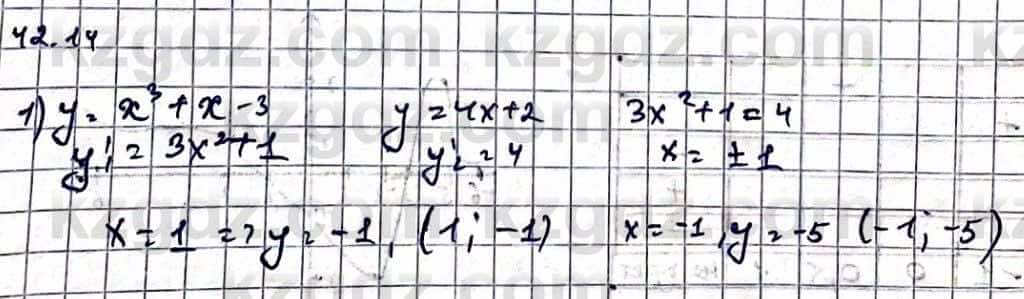 42.14
1) y = x³ + x - 3 y = 4x + 2 3x² + 1 = 4
y' = 3x² + 1 y' = 4 x = ± 1
x = 1 => y = -1, (1; -1) x = -1, y = -5 (-1; -5)
kzgdz.com